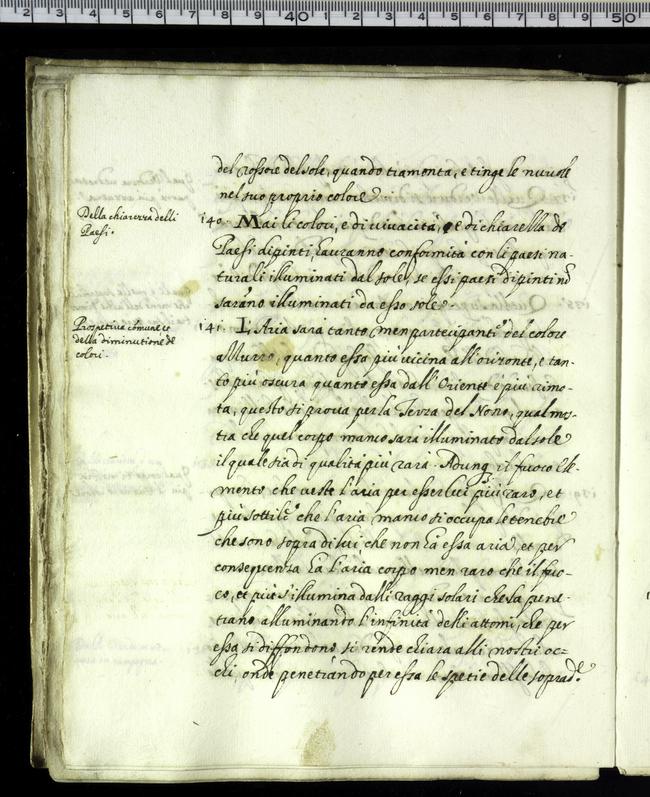 del rossore del sole, quando tramonta, e tinge le nuvole
nel suo proprio colore
Della chiarezza delli
Paesi.
140. Mai li colori, e di vivacità, e di chiarezza de
Paesi dipinti, hauranno conformità con li paesi na-
turali illuminati dal sole, se essi paesi dipinti nō
sarano illuminati da esso sole
Prospetiva comune
della diminutione de
colori.
141. L'Aria sarà tanto men partecipante del colore
azzurro, quanto essa piu vicina all'orizonte, e tan-
to più oscura quanto essa dall'Oriente è più rimo-
ta, questo si prova per la Terza del Nono, qual mos-
tra che quel corpo manco sarà illuminato dal sole
il quale sia di qualità più rara. Adunq. il fuoco Ele-
mento che veste l'aria per esser lui più raro, et
più sottile che l'aria manco ci occupa le tenebre
che sono sopra di lui, che non hà essa aria, et per
consequenza hà l'aria corpo men raro che il fuo-
co, et più s'illumina dalli raggi solari che la pene-
trano alluminando l'infinità delli attomi, che per
essa si diffondono, si rende chiara alli nostri oc=
chi, onde penetrando per essa le spetie delle soprad.e